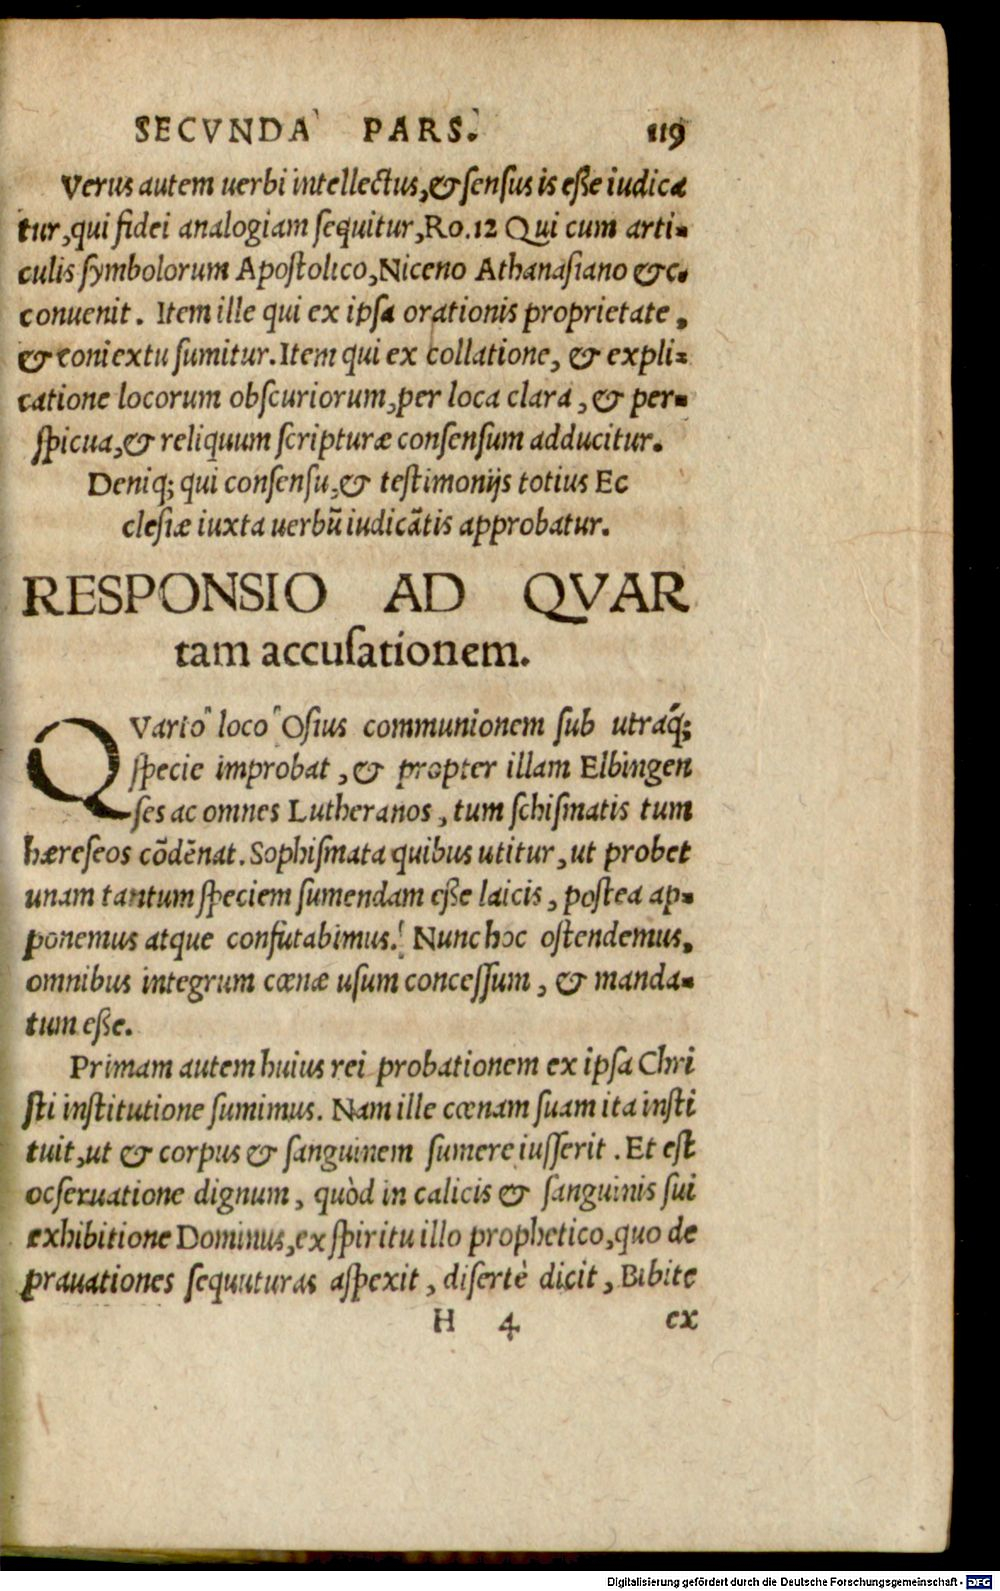 SECVNDA PARS. 119
Verus autem uerbi intellectus,& sensus is eße iudica
tur,qui fidei analogiam sequitur,Ro.12 Qui cum arti-
culis symbolorum Apostolico,Niceno Athanasiano &c.
conuenit. Item ille qui ex ipsa orationis proprietate,
& contextu sumitur. Item qui ex collatione, & expli-
catione locorum obscuriorum,per loca clara, & per-
spicua,& reliquum scripturæ consensum adducitur.
Deniq; qui consensu,& testimonijs totius Ec
clesiæ iuxta uerbũ iudicãtis approbatur.
RESPONSIO AD QVAR
tam accusationem.
QVarto loco Osius communionem sub utráq;
specie improbat, & propter illam Elbingen
ses ac omnes Lutheranos, tum schismatis tum
hæreseos cõdẽnat. Sophismata quibus utitur, ut probet
unam tantum speciem sumendam eße laicis, postea ap-
ponemus atque confutabimus. Nunc hoc ostendemus,
omnibus integrum cœnæ usum concessum, & manda-
tum eße.
Primam autem huius rei probationem ex ipsa Chri
sti institutione sumimus. Nam ille cœnam suam ita insti
tuit,ut & corpus & sanguinem sumere iusserit. Et est
ocseruatione dignum, quòd in calicis & sanguinis sui
exhibitione Dominus,ex spiritu illo prophetico,quo de
prauationes sequuturas aspexit, disertè dicit, Bibite
H 4 ex
Digitalisierung gefördert durch die Deutsche Forschungsgemeinschaft - DFG